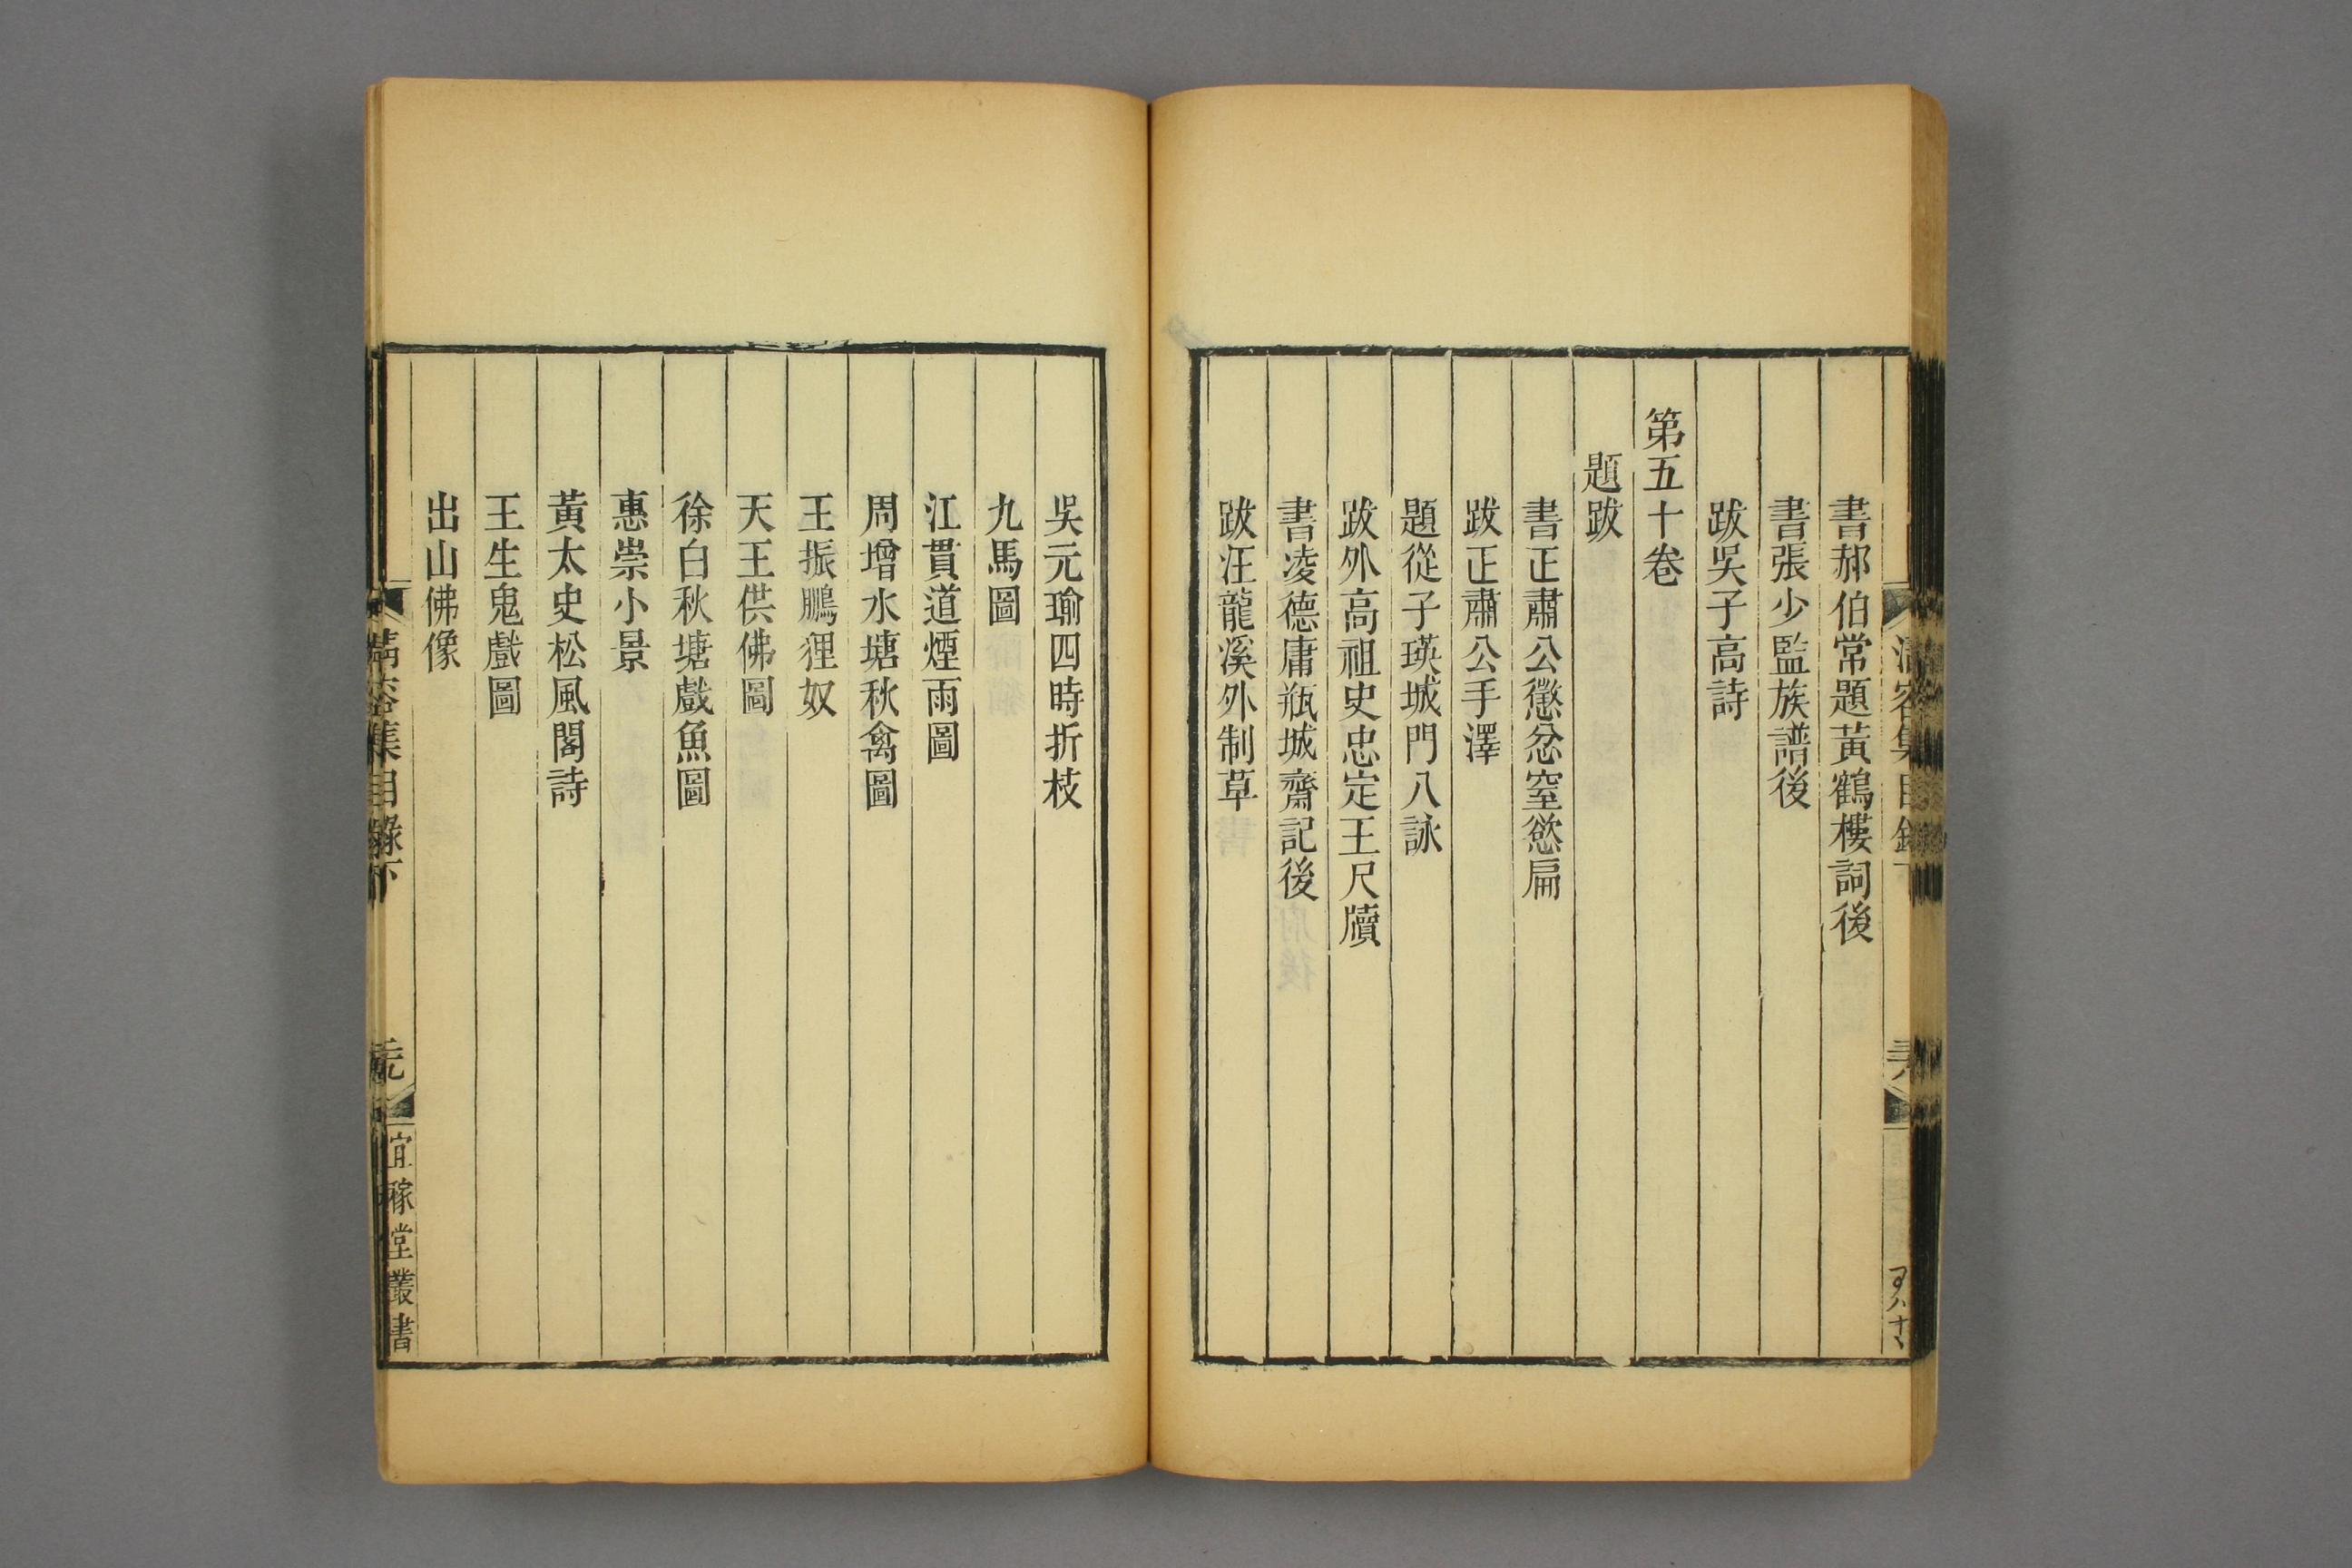 書郝伯常題黃鶴樓詞後
書張少監族譜後
跋吳子高詩
第五十卷
題跋
書正肅公懲忿窒慾扁
跋正肅公手澤
題從子瑛城門八詠
跋外高祖史忠定王尺牘
書凌德庸瓶城齋記後
跋汪龍溪外制草
吳元瑜四時折枝
九馬圖
江貫道煙雨圖
周增水塘秋禽圖
王振鵬狸奴
天王供佛圖
徐白秋塘戲魚圖
惠崇小景
黃太史松風閣詩
王生鬼戲圖
出山佛像
清容集目錄下
宜稼堂叢書